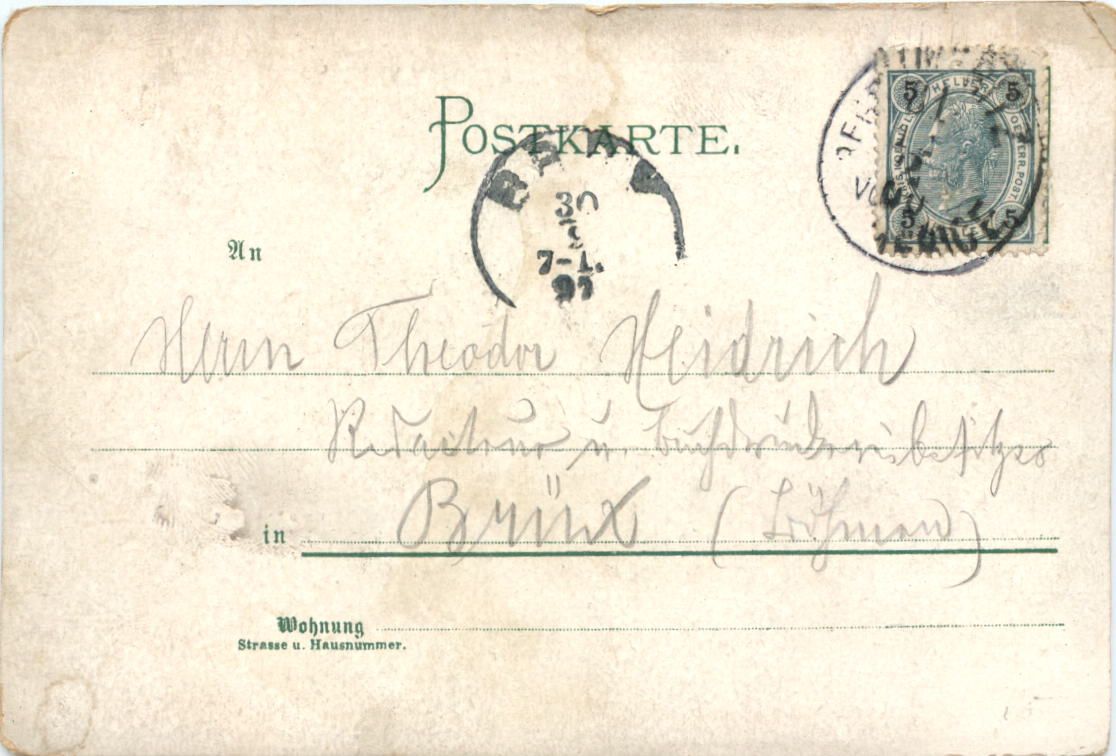 POSTKARTE.
5 HELLER 5
5 5
30
7-1.
97
An
Herrn Theodor Heidrich
Redacteur u. Buchdruckereibesitzer
in Brüx (Böhmen)
Wohnung
Strasse u. Hausnummer.